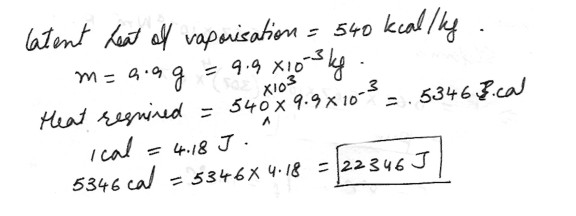 latent heat of vaporisation = 540 kcal/kg.
m = 9.9 g = 9.9 ×10⁻³ kg.
Heat required = 540 ×10³ × 9.9 × 10⁻³ = . 5346 cal
1 cal = 4.18 J.
5346 cal = 5346 × 4.18 = 22346 J